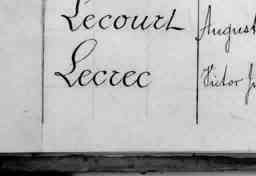 Lecourt August
Lecrec Victor